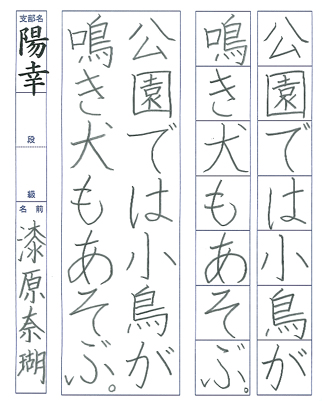 公園では小鳥が
鳴き犬もあそぶ。
公園では小鳥が
鳴き犬もあそぶ。
支部名
陽幸
段
級
名前
漆原奈瑚